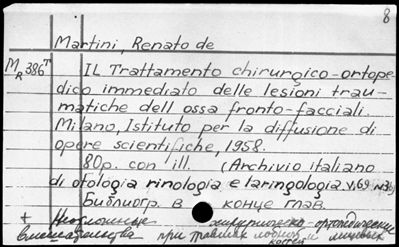 8
Martini, Renato de
MR386T IL Trattamento chirurgico-ortope-
dico immediato delle lesioni trau-
matiche dell ossa fronto-facciali.
Milano, Istituto per la diffusione di
opere scientifiche, 1958.
80p. con ill. (Archivio italiano
di otologia rinologia e laringologia v.69
Библиогр. в конце глав.
+ Неотложные хирургическо-ортопедические
вмешательства при травмах лобной и лицевых
костей